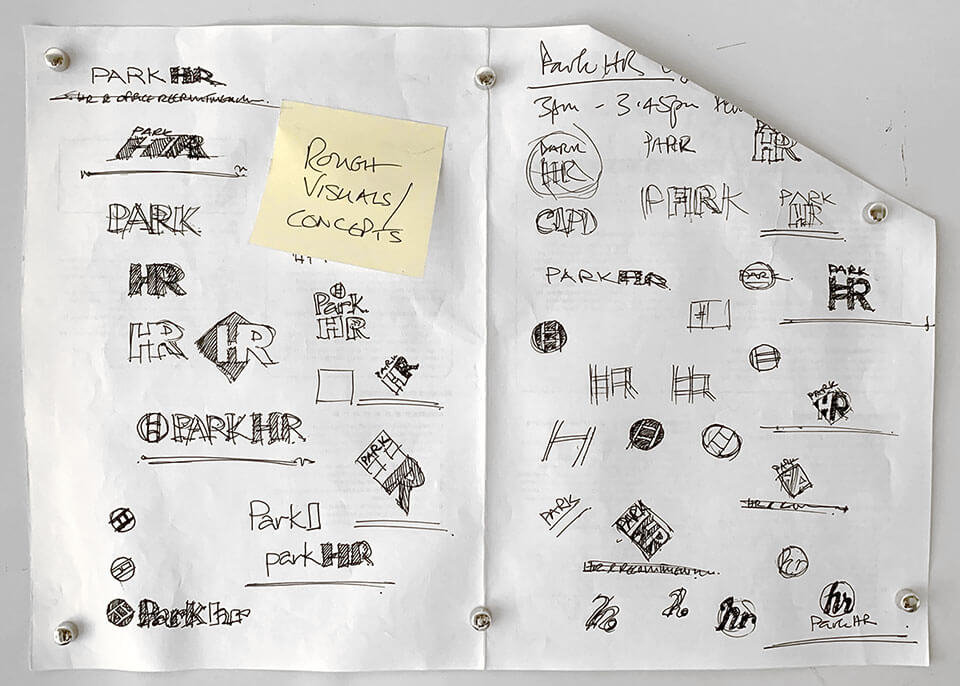 PARK HR
HR & OFFICE RECRUITMENT
PARK
HR
PARK
HR
HR
HR
PARK HR
Park
parkHR
Park hr
ROUGH
VISUALS/
CONCEPTS
Park
HR
PARK
HR
PARK
Park HR
3Am - 3.45pm
PARK
HR
PARK
PARK
HR
PHRK
PARK
HR
CAPD
PARK HR
PARK
PARK
HR
H
HR
HR
PARK
HR
H
PARK
PARK
PARK
HR & RECRUITMENT
hr
h
h
hr
hr
Park HR